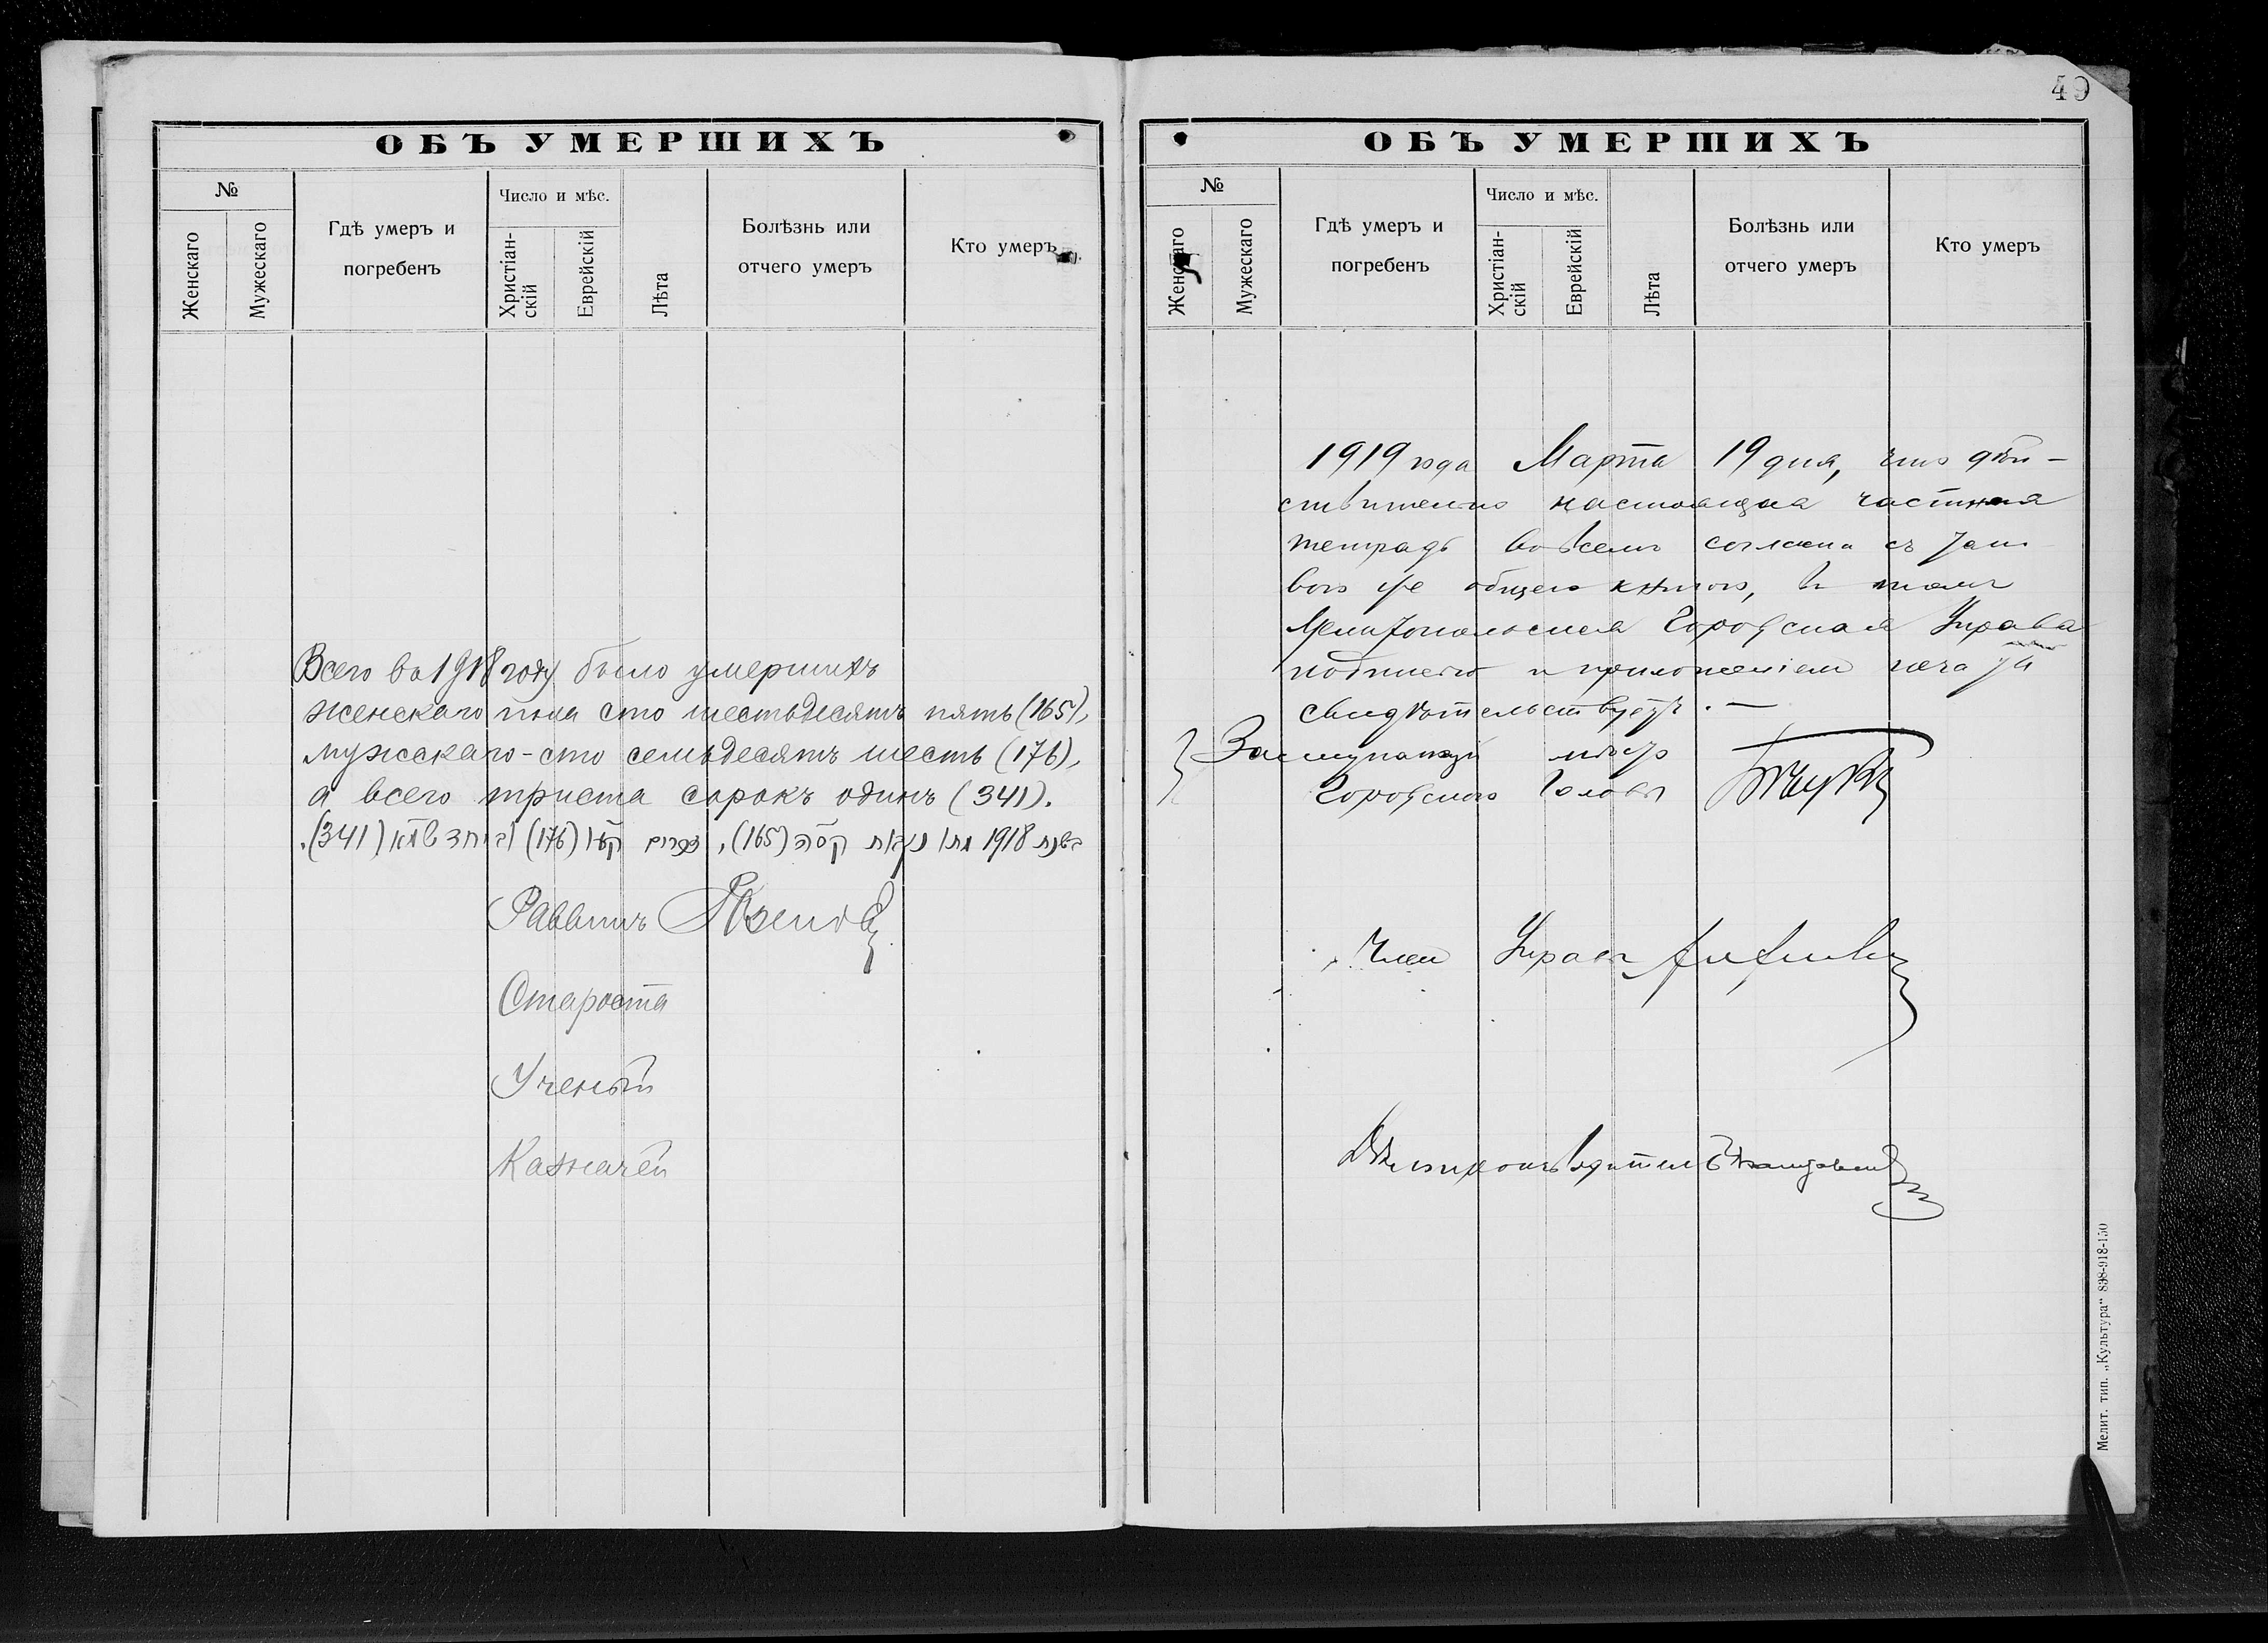 ОБЪ УМЕРШИХЪ
№
Женскаго
Мужескаго
Гдѣ умеръ и
погребенъ
Число и мѣс.
Христіан-
скій
Еврейскій
Лѣта
Болѣзнь или
отчего умеръ
Кто умеръ
Всего во 1918 году было умершихъ
женскаго пола сто шестьдесятъ пять (165),
мужскаго - сто семьдесятъ шесть (176),
а всего триста сорокъ одинъ (341).
בשנת 1918 מתו נקבות קסה (165), זכרים קעו (176) וביחד שמא (341).
Раввинъ
Староста
Ученый
Казначей
49
ОБЪ УМЕРШИХЪ
№
Женскаго
Мужескаго
Гдѣ умеръ и
погребенъ
Число и мѣс.
Христіан-
скій
Еврейскій
Лѣта
Болѣзнь или
отчего умеръ
Кто умеръ
1919 года Марта 19 дня, что дѣй-
ствительно настоящая частная
тетрадь во всемъ согласна съ
общею книгою, въ томъ
Мелитопольская Городская Управа
подписью и приложеніем печати
свидѣтельствуетъ. —
Заступающій мѣсто
Городского Головы
Член Управы
Дѣлопроизводитель
Мелит. тип. „Культура" 838-918-150